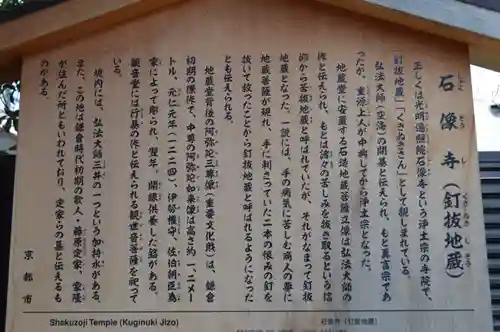 石像寺(釘抜地蔵)
正しくは光明遍照院石像寺という浄土宗の寺院で、
「釘抜地蔵」「くぎぬきさん」として親しまれている。
弘法大師(空海)の開基と伝えられ、もと真言宗であ
ったが、重源上人が中興してから浄土宗となった。
地蔵堂に安置する石造地蔵菩薩立像は弘法大師の
作と伝えられ、もとは諸々の苦しみを抜き取るという信
仰から苦抜地蔵と呼ばれていたが、それがなまって釘抜
地蔵となった。一説には、手の病気に苦しむ商人の夢に
地蔵菩薩が現れ、手に刺さっていた二本の恨みの釘を
抜いて救ったことから釘抜地蔵と呼ばれるようになった
とも伝えられる。
地蔵堂背後の阿弥陀三尊像(重要文化財)は、鎌倉
初期の際作で、中尊の阿弥陀如来像は高さ約一、一メー
トル、元仁元年(一二二四)、伊勢権守、佐伯朝臣為
家によって彫られ、翌年、開眼供養した銘がある。
観音堂には行基の作と伝えられる観世音菩薩を祀って
いる。
境内には、弘法大師三井の一つという加持水がある。
また、この地は鎌倉時代初期の歌人・藤原定家、家隆
が住んだ所ともいわれており、定家らの墓と伝えるも
のがある。
京都市
Shakuzoji Temple (Kuginuki Jizo)